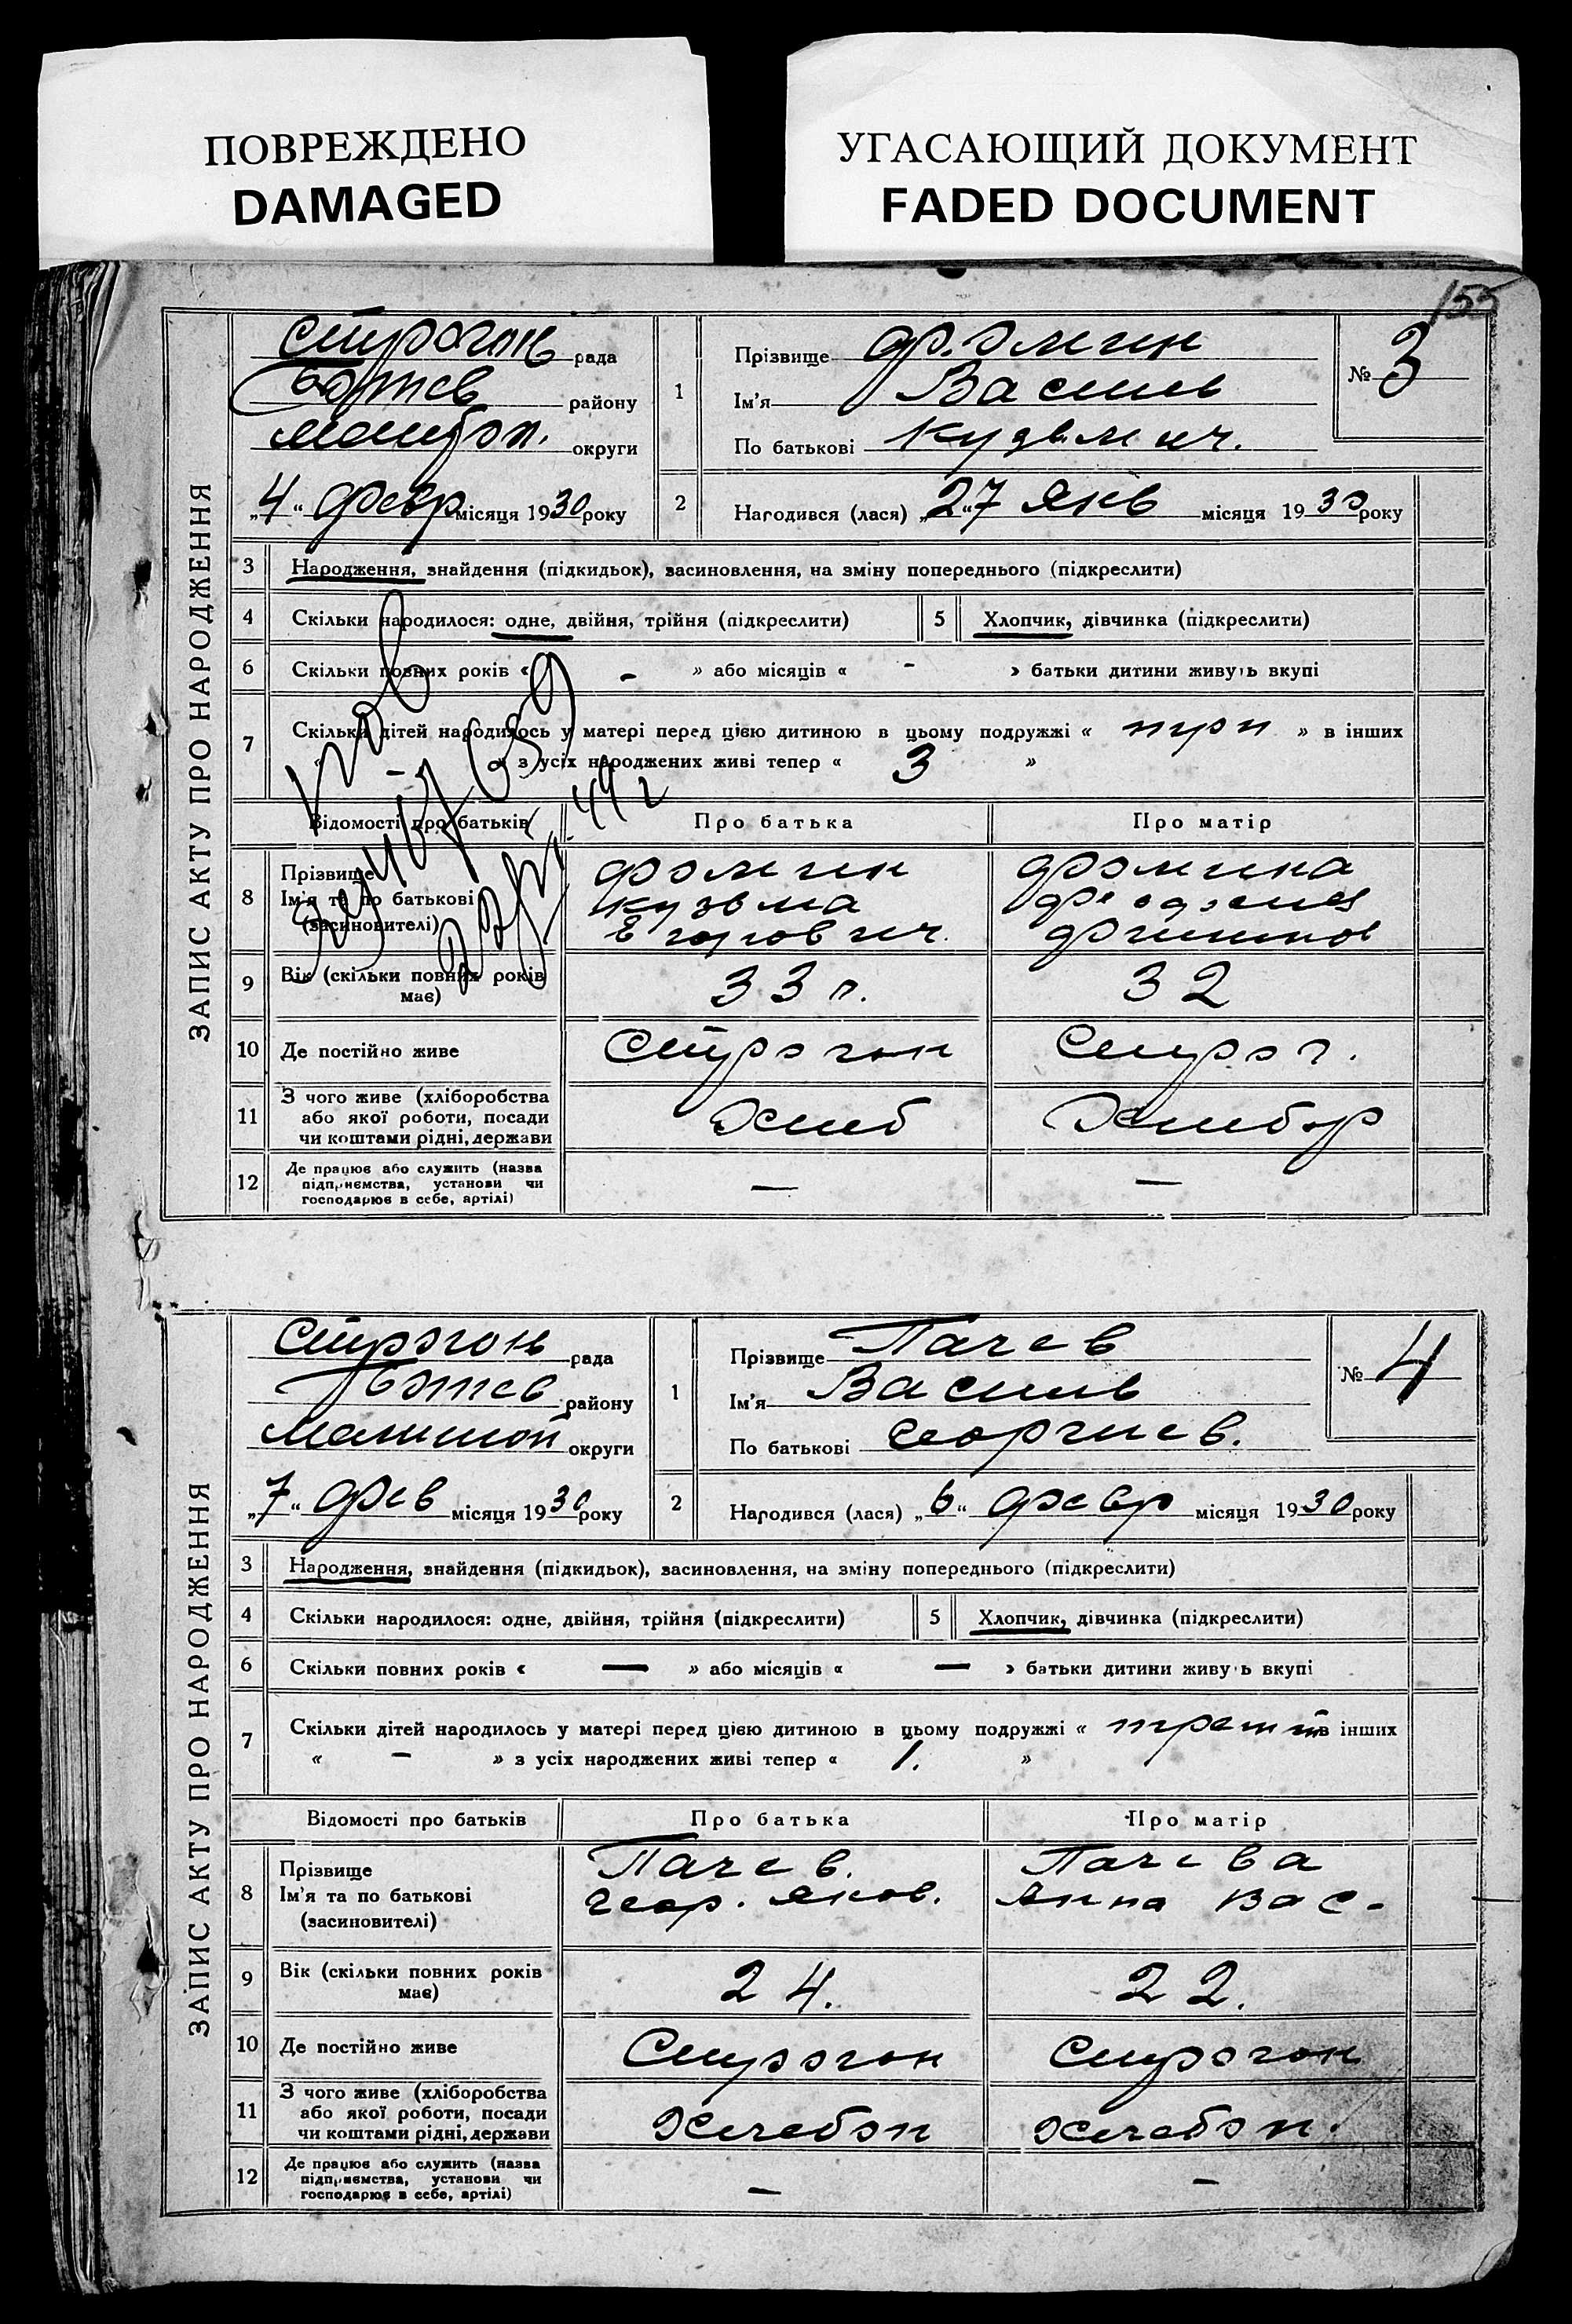 ПОВРЕЖДЕНО
DAMAGED
УГАСАЮЩИЙ ДОКУМЕНТ
FADED DOCUMENT
155
ЗАПИС АКТУ ПРО НАРОДЖЕННЯ
Строгон рада
району
округи
„4“ февр місяця 1930 року
1 Прізвище Фомин
Ім'я Василь
По батькові Кузьмич.
№ 3
2 Народився (лася) „27 Янв місяця 1930 року
3 Народження, знайдення (підкидьок), васиновлення, на зміну попереднього (підкреслити)
4 Скільки народилося: одне, двійня, трійня (підкреслити)
5 Хлопчик, дівчинка (підкреслити)
6 Скільки повних років « - » або місяців « - » батьки дитини живуть вкупі
7 Скільки дітей народилось у матері перед цією дитиною в цьому подружжі « три » в інших
« - » з усіх народжених живі тепер « 3 »
Відомості про батьків
Про батька
Про матір
8 Прізвище
Ім'я та по батькові
(васиновителі)
Фомин
Кузьма
Егорович.
Фомина
9 Вік (скільки повних років має)
33 г.
32
10 Де постійно живе
Строгон
Строг.
11 З чого живе (хліборобства
або якої роботи, посади
чи коштами рідні, держави
Хлиб
Хлибор
12 Де працює або служить (назва
підприємства, установи чи
господарює в себе, артілі)
—
—
ЗАПИС АКТУ ПРО НАРОДЖЕННЯ
Строгон рада
району
округи
„7“ Фев місяця 1930 року
1 Прізвище Пачев
Ім'я Василь
По батькові Георгиев.
№ 4
2 Народився (лася) „6“ февр місяця 1930 року
3 Народження, знайдення (підкидьок), васиновлення, на зміну попереднього (підкреслити)
4 Скільки народилося: одне, двійня, трійня (підкреслити)
5 Хлопчик, дівчинка (підкреслити)
6 Скільки повних років « — » або місяців « — » батьки дитини живуть вкупі
7 Скільки дітей народилось у матері перед цією дитиною в цьому подружжі « в інших
« - » з усіх народжених живі тепер « 1. »
Відомості про батьків
Про батька
Про матір
8 Прізвище
Ім'я та по батькові
(засиновителі)
Пачев.
Геор. Яков.
Пачева
Анна Вас-
9 Вік (скільки повних років має)
24.
22.
10 Де постійно живе
Строгон
Строгон
11 З чого живе (хліборобства
або якої роботи, посади
чи коштами рідні, держави
12 Де працює або служить (назва
підприємства, установи чи
господарює в себе, артілі)
—
—